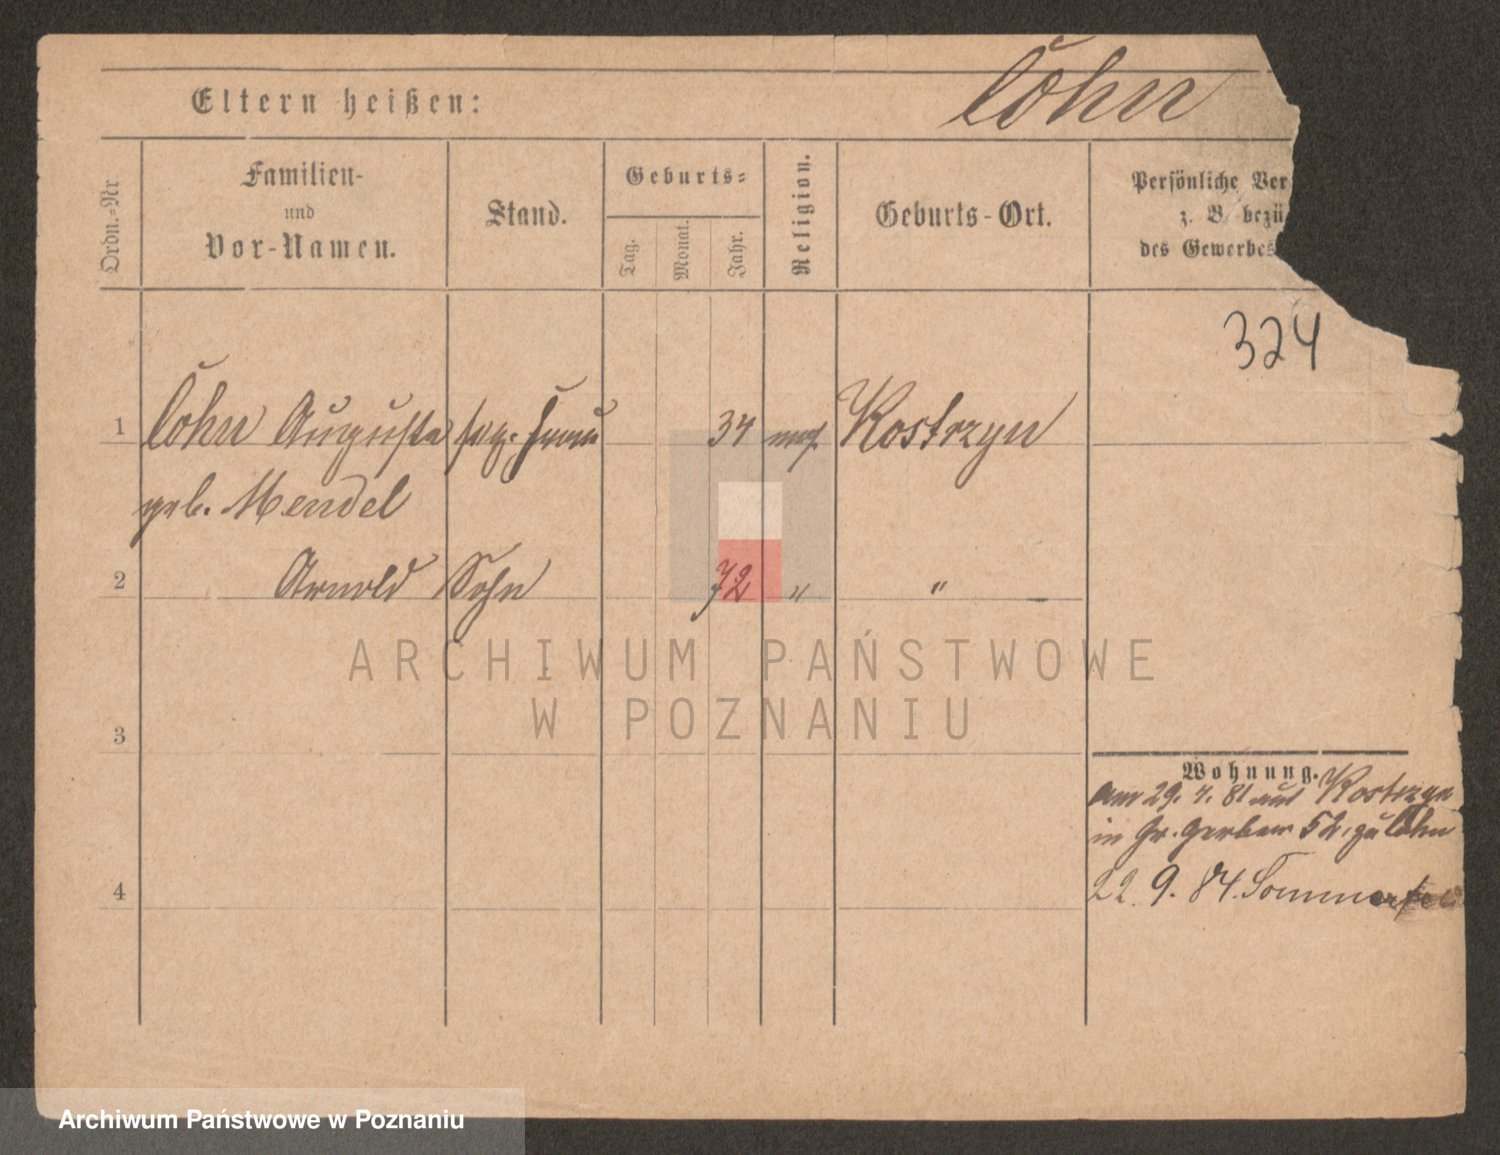 Cohn
Eltern heißen:
Ordn.=Nr
Familien-
und
Vor-Namen.
Stand.
Geburts=
Tag.
Monat.
Jahr.
Religion.
Geburts-Ort.
Persönliche Ver
z. B. bezü
des Gewerbes
324
1 Cohn Auguste Frau 34 mos. Kostrzyn
geb. Mendel
2 Arnold Sohn 72 " "
ARCHIWUM PAŃSTWOWE
W POZNANIU
3
Wohnung.
am 29. 4. 81 aus Kostrzyn
in Gr. Gerber 52, zu Cohn
4
22. 9. 84. Sommerfeld
Archiwum Państwowe w Poznaniu